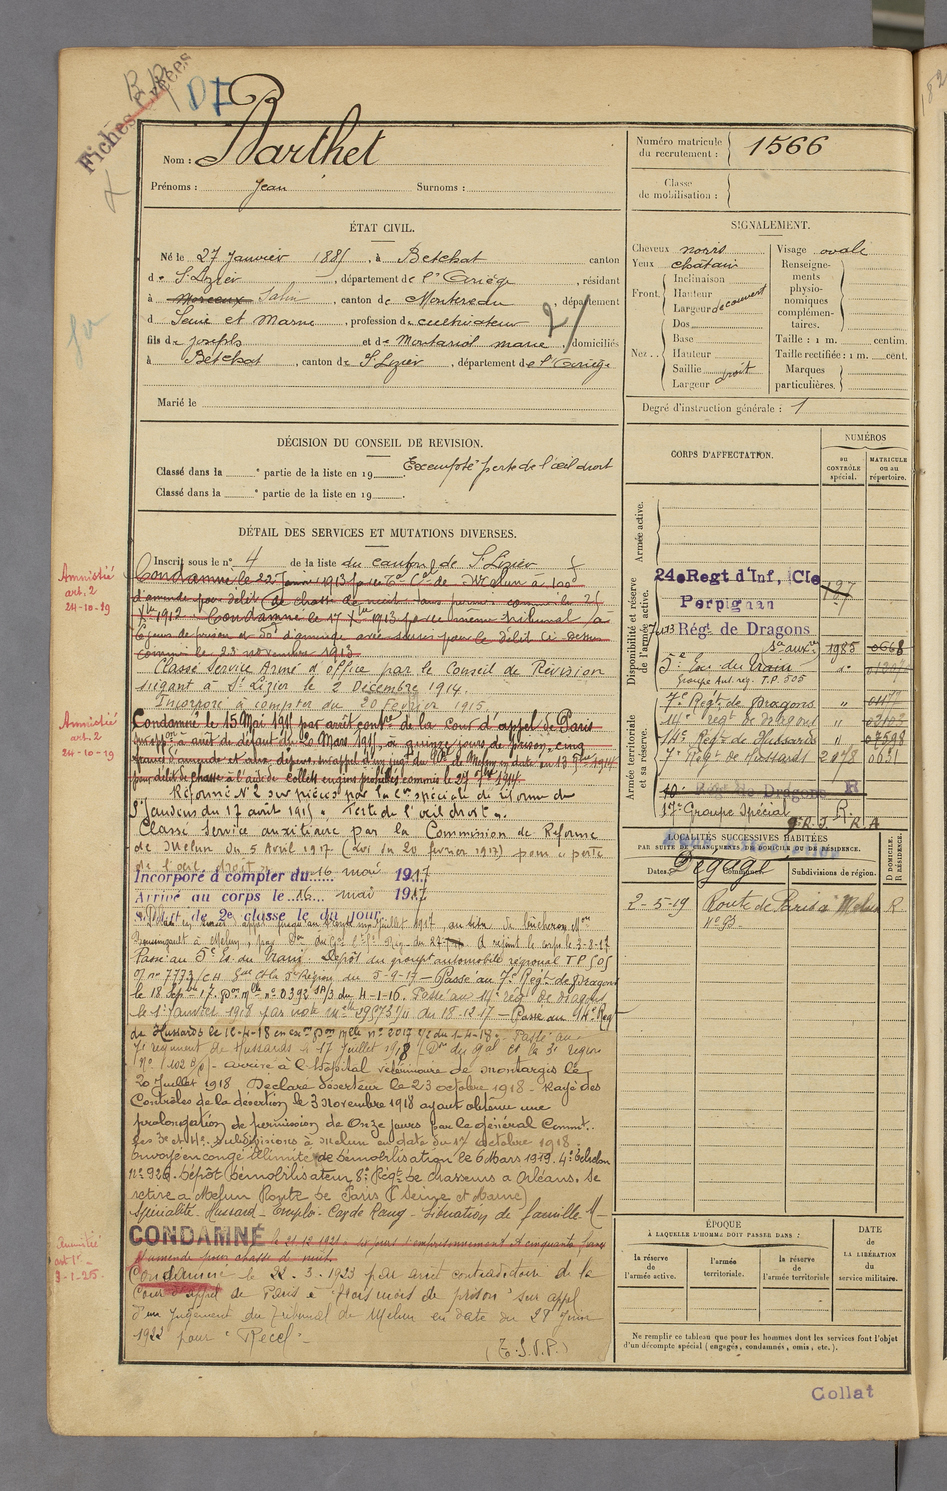 Fiches
DF
Nom : Barthet
Prénoms : Jean Surnoms :
Numéro matricule du recrutement : 1566
Classe de mobilisation :
ÉTAT CIVIL.
Né le 27 Janvier 1885, à Betchat canton
de St Lizier, département de l'Ariège, résidant
à Salins, canton de Montereau, département
d Seine et Marne, profession de cultivateur
fils de Joseph et de Montariol Marie, domiciliés
à Betchat, canton de St Lizier, département de l'Ariège
Marié le
SIGNALEMENT.
Cheveux noirs
Yeux chatain
Front. Inclinaison
Hauteur
Largeur découvert
Nez Dos
Base
Hauteur
Saillie droit
Largeur
Visage ovale
Renseignements physionomiques complémentaires.
Taille : 1 m. centim.
Taille rectifiée : 1 m. cent.
Marques particulières.
Degré d'instruction générale : 1
DÉCISION DU CONSEIL DE REVISION.
Classé dans la e partie de la liste en 19 Exempté perte de l'œil droit
Classé dans la e partie de la liste en 19
DÉTAIL DES SERVICES ET MUTATIONS DIVERSES.
Inscrit sous le n° 4 de la liste du canton de St Lizier
Amnistié
art. 2
24-10-19
Condamné le 22 Janvier 1913 par le de Melun à 100f
d'amende pour délit de chasse de nuit sans permis commis le
1912. Condamné le 17 Xbre 1913 par le même tribunal à
6 jours de prison et 50f d'amende avec sursis pour le délit ci-dessus
commis le 23 novembre 1913
Classé Service Armé d'office par le Conseil de Révision
siégeant à St Lizier le 2 Décembre 1914.
Incorporé à compter du 20 Février 1915.
Amnistié
art. 2
24-10-19
Condamné le 15 Mai 1915 par arrêt contre de la Cour d'appel de Paris
sur oppon à arrêt de défaut du 20 Mars 1915 à quinze jours de prison, cinq
francs d'amende et aux dépens, sur appel d'un jugt du de Melun en date du 13
pour délit de chasse à l'aide de collets engins prohibés commis le 27 1914
Réformé N° 2 sur pièces par la Con spéciale de réforme de
St Gaudens du 17 avril 1915 « Perte de l'œil droit ».
Classé Service auxiliaire par la Commission de Réforme
de Melun du 5 Avril 1917 (Loi du 20 février 1917) pour « perte
de l'œil droit »
Incorporé à compter du 16 mai 1917
Arrivé au corps le 16 mai 1917
de 2e classe le du jour
Passé au 5e Es. du Train. Dépôt du groupement automobile régional T P 505
n° 7773/CH du 5-9-17 — Passé au 7e Régt de Dragons
le 18 Sepbre 17. n° 0392 du 4-1-16. Passé au 14e régt de dragons
le 1er Janvier 1918 par note n° 29573/4 du 18-12-17 — Passé au 14e Régt
de Hussards le 12-4-18 n° 2017 du 1-4-18. Passé au
7e régiment de Hussards le 17 Juillet 1918 (Don du Gal Ct la 5e région
N° 1102 arrivé à l'Hôpital vétérinaire de Montargis le
20 Juillet 1918 Déclaré déserteur le 23 octobre 1918. Rayé des
Contrôles de la désertion le 3 novembre 1918 ayant obtenu une
prolongation de permission de Onze jours par le Général Commt.
les 3e et 4e subdivisions à Melun en date du 17 octobre 1918.
Envoyé en congé illimité de démobilisation le 6 Mars 1919. 4e échelon
n° 926. dépôt démobilisateur 8e Régt de chasseurs à Orléans. Se
retire à Melun Route de Paris (Seine et Marne)
Spécialité - Hussard - Emploi - Cav de Rang - Situation de famille M
Amnistié
art 1er
3-1-25
CONDAMNÉ le 21-12-1921 10 jours d'emprisonnement et cinquante francs
d'amende pour chasse de nuit
Condamné le 22.3.1923 par arrêt contradictoire de la
Cour d'appel de Paris à "trois mois de prison" sur appel
d'un jugement du Tribunal de Melun en date du 29 Juin
1922 pour "Recel".
(T.S.V.P.)
CORPS D'AFFECTATION.
NUMÉROS
au CONTRÔLE spécial.
MATRICULE ou au répertoire.
Armée active.
Disponibilité et réserve de l'armée active.
24e Regt d'Inf, Cie Perpignan
Régt de Dragons
Son auxre 1985 0668
5e Esc. du Train
Groupe Aut. reg. T.P. 505
7e Régt de Dragons
14e régt de dragons
14e Régt de Hussards 07598
7e Régt de Hussards 2078 0631
Armée territoriale et sa réserve.
10e Régt de Dragons R
17e Groupe Spécial R.
LOCALITÉS SUCCESSIVES HABITÉES
PAR SUITE DE CHANGEMENTS DE DOMICILE OU DE RÉSIDENCE.
Dates. Communes. Subdivisions de région. D DOMICILE. R RÉSIDENCE.
Dégagé
2-5-19 Route de Paris à Melun R
N° 93
ÉPOQUE
À LAQUELLE L'HOMME DOIT PASSER DANS :
la réserve de l'armée active.
l'armée territoriale.
la réserve de l'armée territoriale
DATE DE LA LIBÉRATION du service militaire.
Ne remplir ce tableau que pour les hommes dont les services font l'objet
d'un décompte spécial (engagés, condamnés, omis, etc.).
Collat